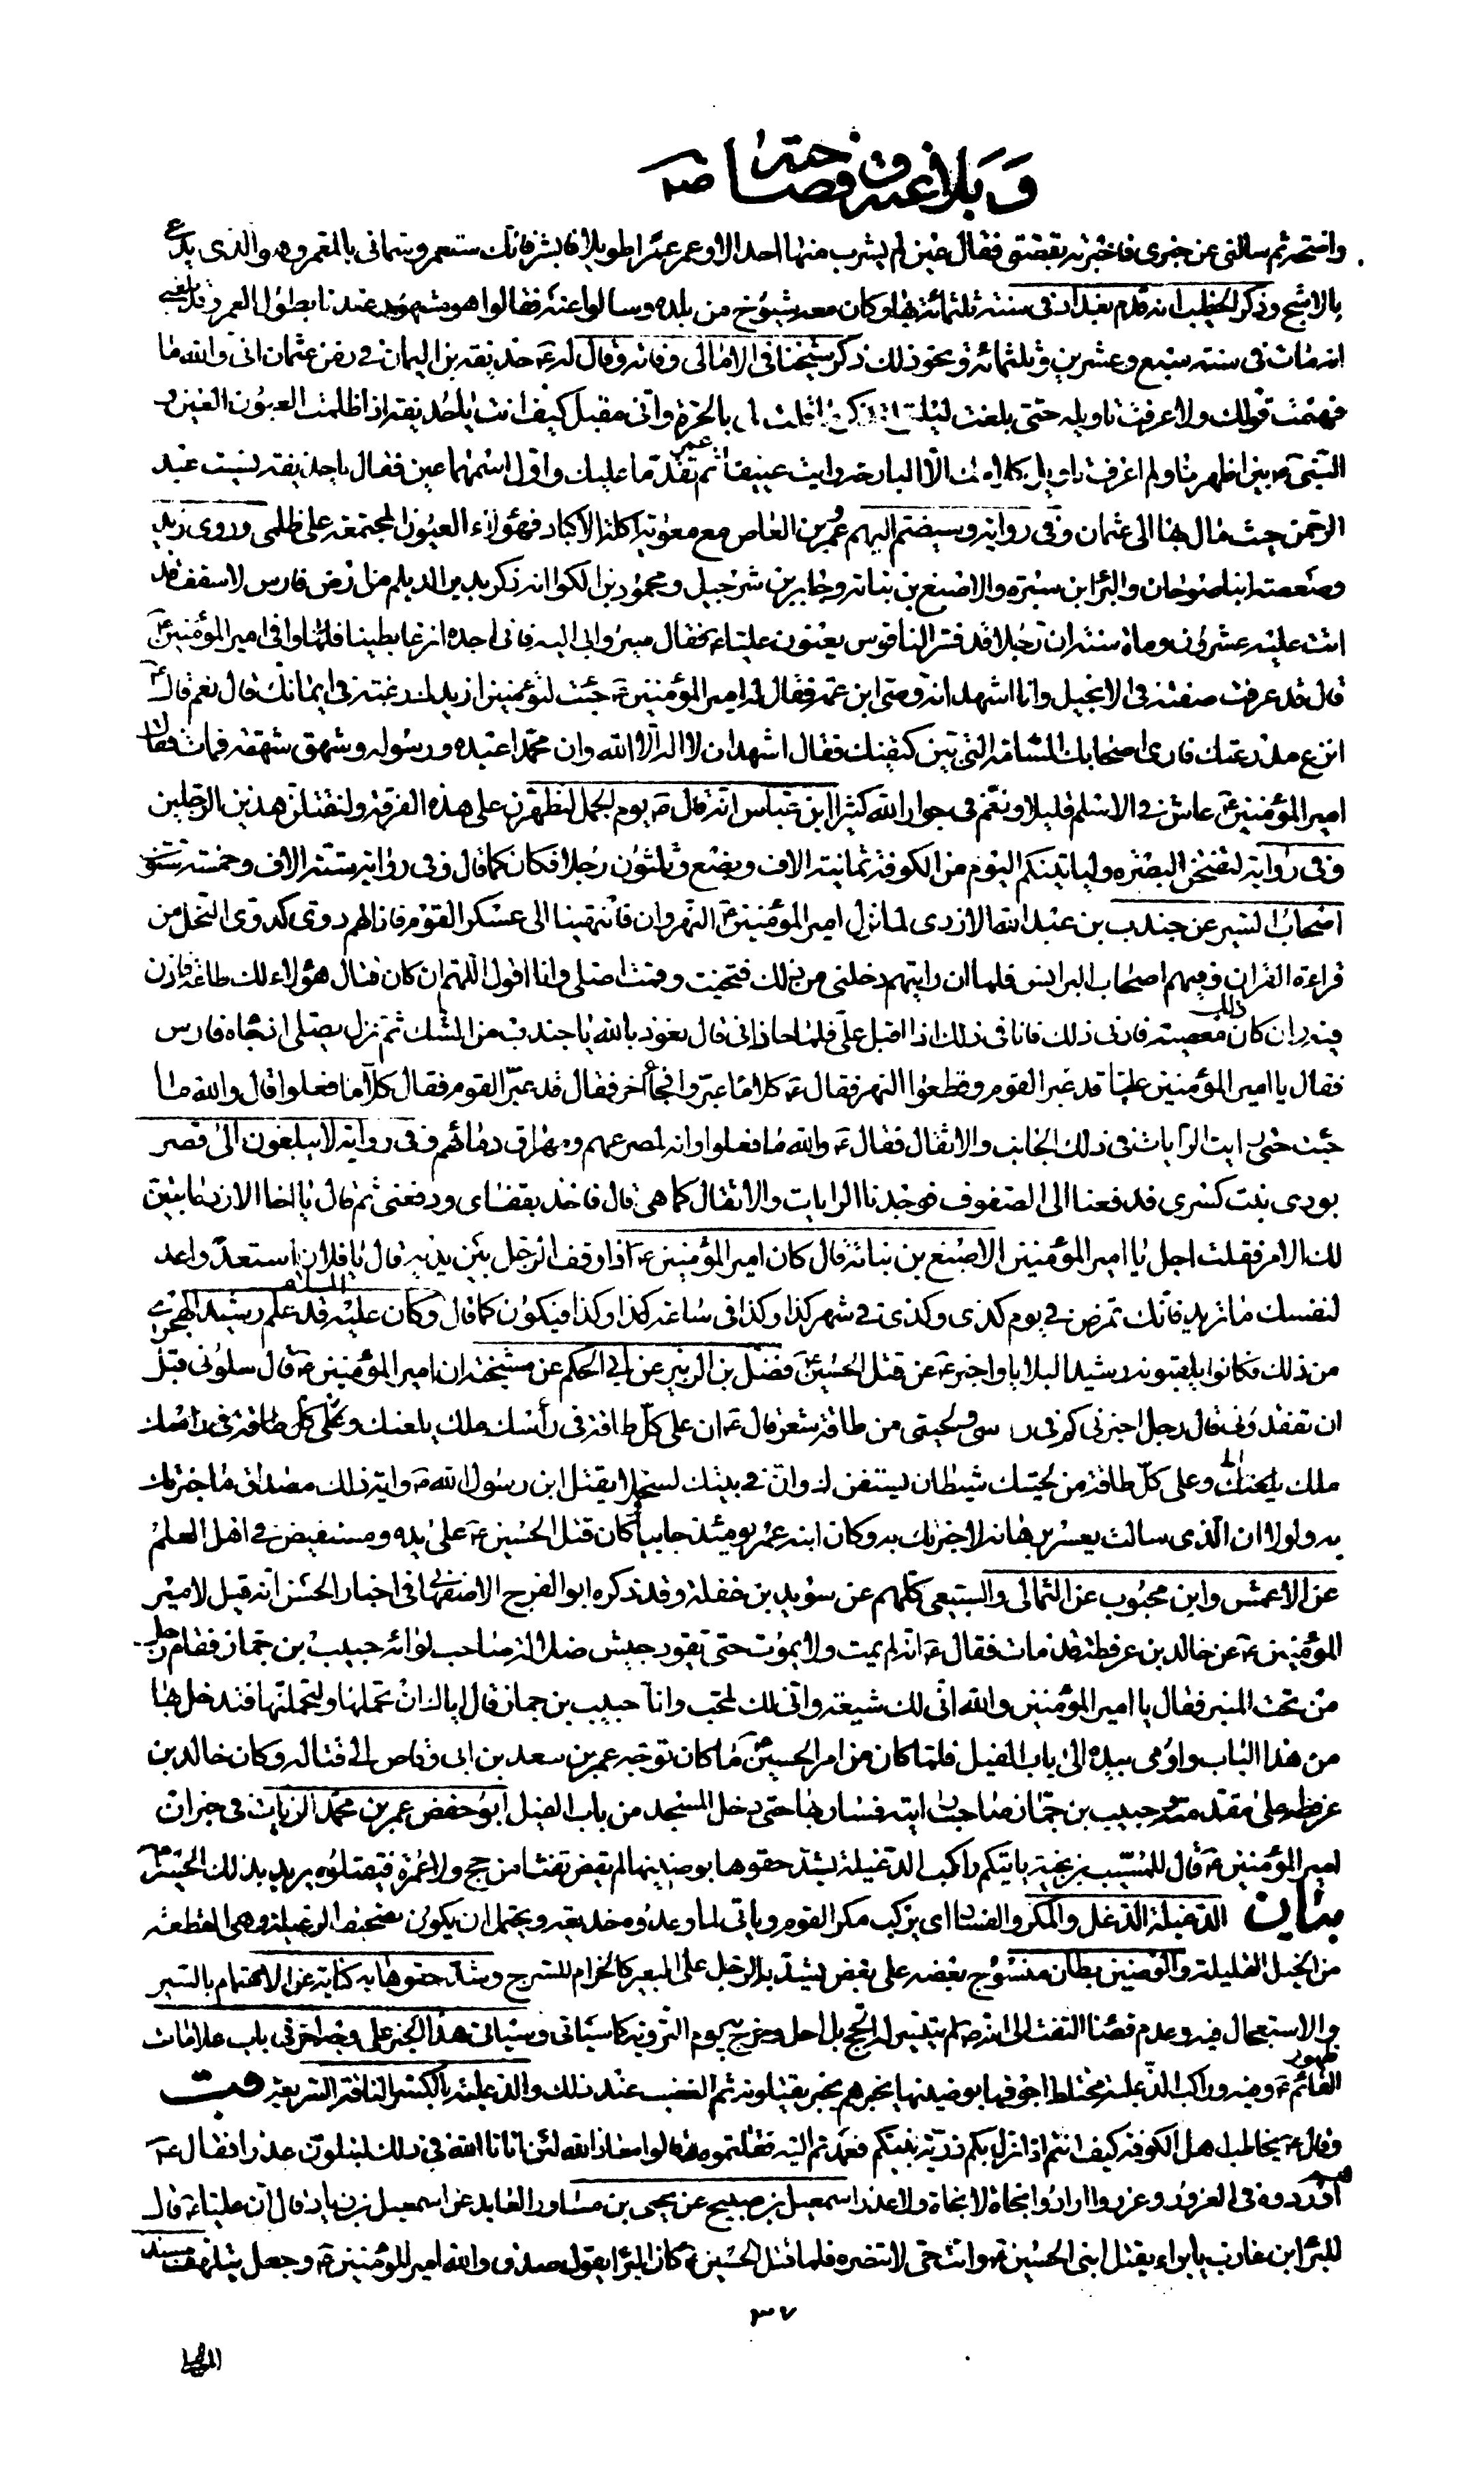 وبلاغته وفصاحته ص
واضحة ثم سالنى عن خبرى فاخبرته بقصتى فقال عين لم يشرب منها احد الا وعمر عمرا طويلا فابشر فانك ستعمر وسمانى بالمعمر وهو الذى يدعى
بالاشج وذكر الخطيب انه قدم بغداد فى سنة ثلثمائة بها وكان معه شيوخ من بلده وسالوا عنه فقالوا هو مشهور عندنا بطول العمر وقد بلغنى
انه مات فى سنة سبع وعشرين وثلثمائة ونحو ذلك ذكر شيخنا فى الامالى وفاته وقال له ع حذيفة بن اليمان فى زمن عثمان انى والله ما
فهمت قولك ولا عرفت تاويله حتى بلغت ليلتى اتذكر ما قلت لى بالحرة وانى مقبل كيف انت يا حذيفة اذا ظلمت العيون العين و
النبى ص بين اظهرنا ولم اعرف تاويل كلامك الا البارحة رايت عتيقا ثم عمر تقدما عليك واول اسمهما عين فقال يا حذيفة نسيت عبد
الرحمن حيث مال بها الى عثمان وفى رواية وسيضم اليهم عمرو بن العاص مع معوية ابن اكلة الاكباد فهؤلاء العيون المجتمعة على ظلمى وروى زيد
وصعصعة ابنا صوحان والبرا بن سبرة والاصبغ بن نباتة وجابر بن شرحبيل ومحمود بن الكوا انه ذكر بدير الديلم من ارض فارس لاسقف قد
اتت عليه عشرون ومائة سنة ان رجلا قد فسر الناقوس يعنون عليا ع فقال سيروا بى اليه فانى اجده انزعا بطينا فلما وافى امير المؤمنين ع
قال قد عرفت صفته فى الانجيل وانا اشهد انه وصى ابن عمه فقال له امير المؤمنين ع جئت لتؤمن ازيدك رغبة فى ايمانك قال نعم قال ع
انزع مدرعتك فارى اصحابك الشامة التى بين كتفيك فقال اشهد ان لا اله الا الله وان محمدا عبده ورسوله وشهق شهقة فمات فقال
امير المؤمنين ع عاش فى الاسلم قليلا ونعم فى جوار الله كثيرا ابن عباس انه قال ص يوم الجمل لنظهرن على هذه الفرقة ولنقتلن هذين الرجلين
وفى رواية لنفتحن البصرة وليأتينكم اليوم من الكوفة ثمانية الاف وبضع وثلثون رجلا فكان كما قال وفى رواية ستة الاف وخمسة وستون
اصحاب السير عن جندب بن عبد الله الازدى لما نزل امير المؤمنين ع النهروان فانتهينا الى عسكر القوم فاذا لهم دوى كدوى النحل من
قراءة القران وفيهم اصحاب البرانس فلما ان رايتهم دخلنى من ذلك فتنحيت وقمت اصلى وانا اقول اللهم ان كان قتال هؤلاء لك طاعة فاذن
فيه وان كان ذلك معصية فارنى ذلك فانا فى ذلك اذا اقبل على فلما حاذانى قال نعوذ بالله يا جندب من الشك ثم نزل يصلى اذ جاءه فارس
فقال يا امير المؤمنين عليا قد عبر القوم وقطعوا النهر فقال ع كلا ما عبروا فجاء اخر فقال قد عبر القوم فقال كلا ما فعلوا قال والله ما
جئت حتى رايت الرايات فى ذلك الجانب والاثقال فقال ع والله ما فعلوا وانه لمصرعهم ومهراق دمائهم وفى رواية لا يبلغون الى قصر
بودى بنت كسرى فدفعنا الى الصفوف فوجدنا الرايات والاثقال كما هى قال فاخذ بقفاى ودفعنى ثم قال يا اخا الازد ما تبين
لك الامر فقلت اجل يا امير المؤمنين الاصبغ بن نباتة قال كان امير المؤمنين ع اذا وقف الرجل بين يديه قال يا فلان استعد واعد
لنفسك ما تريد فانك تمرض فى يوم كذى وكذى فى شهر كذا وكذا فى ساعة كذا وكذا فيكون كما قال وكان عليه السلام قد علم رشيد الهجرى
من ذلك فكانوا يلقبونه رشيد البلايا واخبر ع عن قتل الحسين ع فضل بن الزبير عن ابى الحكم عن مشيخته ان امير المؤمنين ع قال سلونى قبل
ان تفقدونى قال رجل اخبرنى كم فى راسى ولحيتى من طاقة شعر قال ع ان على كل طاقة فى رأسك ملك يلعنك وعلى كل طاقة فى راسك
ملك يلعنك وعلى كل طاقة من لحيتك شيطان يستفزك وان فى بيتك لسخلا يقتل ابن رسول الله ص واية ذلك مصداق ما خبرتك
به ولولا ان الذى سالت يعسر برهانه لاخبرتك به وكان ابنه عمر يومئذ حابيا وكان قتل الحسين ع على يده ومستفيض فى اهل العلم
عن الاعمش وابن محبوب عن الثمالى والسبيعى كلهم عن سويد بن غفلة وقد ذكره ابو الفرج الاصفهانى فى اخبار الحسن انه قيل لامير
المؤمنين ع عن خالد بن عرفطة قد مات فقال ع انه لم يمت ولا يموت حتى يقود جيش ضلالة صاحب لوائه حبيب بن جماز فقام رجل
من تحت المنبر فقال يا امير المؤمنين والله انى لك شيعة وانى لك لمحب وانا حبيب بن جماز قال اياك ان تحملها ولتحملنها فتدخل بها
من هذا الباب واومى بيده الى باب الفيل فلما كان من امر الحسين ع ما كان توجه عمر بن سعد بن ابى وقاص الى قتاله وكان خالد بن
عرفطة على مقدمته وحبيب بن جماز صاحب رايته فسار بها حتى دخل المسجد من باب الفيل ابو حفص عمر بن محمد الزيات فى خبر ان
امير المؤمنين ع قال للمسيب بن نجبة ياتيكم راكب الدغيلة يشد حقوها بوضينها لم يقض تفثا من حج ولا عمرة فيقتلوه يريد بذلك الحسين ع
بيان الدغيلة الدغل والمكر والفساد اى يركب مكر القوم وياتى لما وعدوه خديعة ويحتمل ان يكون تصحيف الرعيلة وهى القطعة
من الخيل القليلة والوضين بطان منسوج بعضه على بعض يشد به الرحل على البعير كالحزام للسرج وشد حقوها به كناية عن الاهتمام بالسير
والاستعجال فيه وعدم قضاء التفث الى انه ع لم يتيسر له الحج بل احل وخرج يوم التروية كما سيأتى وسيأتى هذا الخبر على وجه اخر فى باب علامات
ظهور القائم ع وفيه وراكب الذعلبة مختلط اجوفها بوضينها يخبرهم بخبر يقتلونه ثم الغضب عند ذلك والذعلبة بالكسر الناقة السريعة قب
وقال ع يخاطب اهل الكوفة كيف انتم اذا نزل بكم ذرية نبيكم فعمدتم اليه فقتلتموه قالوا معاذ الله لئن اتانا الله فى ذلك لنبلون عذرا فقال ع
هم اوردوه فى الغرور وغرروا ارادوا نجاة لا نجاة ولا عذر اسمعيل بن صبيح عن يحيى بن مساور العابد عن اسمعيل بن زياد قال ان عليا ع قال
للبرا بن عازب يا براء يقتل ابنى الحسين ع وانت حى لا تنصره فلما قتل الحسين ع كان البرا يقول صدق والله امير المؤمنين ع وجعل يتلهف مسند
٣٧